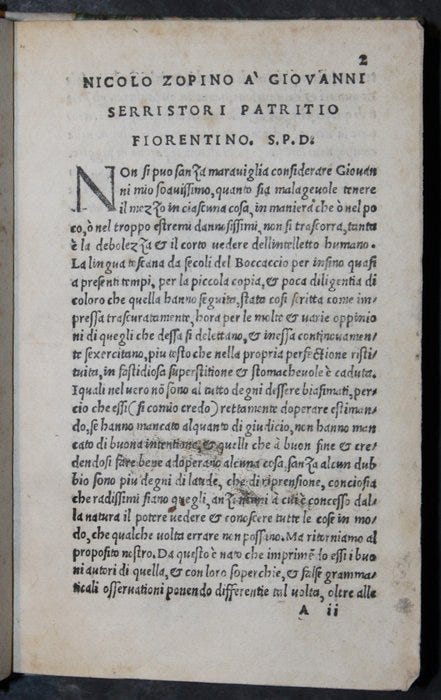 2
NICOLO ZOPINO A' GIOVANNI
SERRISTORI PATRITIO
FIORENTINO. S. P. D.
NOn si puo sanza maraviglia considerare Giovan
ni mio soavissimo, quanto sia malagevole tenere
il mezzo in ciascuna cosa, in maniera che ò nel po
co, ò nel troppo estremi dannosissimi, non si trascorra, tanta
è la debolezza & il corto uedere dellintelletto humano.
La lingua toscana da secoli del Boccaccio per insino quasi
a presenti tempi, per la piccola copia, & poca diligentia di
coloro che quella hanno seguita, stata cosi scritta come im-
pressa trascuratamente, hora per le molte & varie oppinio
ni di quegli che dessa si delettano, & inessa continovamen-
te sexercitano, piu tosto che nella propria perfectione risti-
tuita, in fastidiosa superstitione & stomachevole è caduta.
I quali nel uero nō sono al tutto degni dessere biasimati, per-
cio che essi (si comio credo) rettamente doperare estiman-
do, se hanno mancato alquanto di giudicio, non hanno man
cato di buona intentione, & quelli che à buon fine & cre-
dendosi fare bene adoperano alcuna cosa, sanza alcun dub
bio sono più degni di laude, che di riprensione, conciosia
che radissimi siano quegli, anzi à cui è concesso dal-
la natura il potere uedere & conoscere tutte le cose in mo-
do, che qualche volta errare non possino. Ma ritorniamo al
proposito nostro. Da questo è nato che imprimēdo essi i buo
ni autori di quella, & con loro soperchie, & false gramma-
ticali osservationi ponendo differentie tal volta, oltre alle
A ii